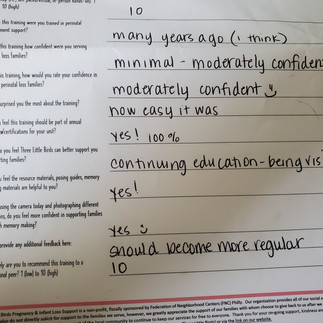 10 (high)
10
this training were you trained in perinatal
ement support?
many years ago (i think)
this training how confident were you serving
loss families?
minimal - moderately confident
is training, how would you rate your confidence in
perinatal loss families?
moderately confident
surprised you the most about the training?
how easy it was
feel this training should be part of annual
/certifications for your unit?
yes! 100%
o you feel Three Little Birds can better support you
rting families?
continuing education - being vis
u feel the resource materials, posing guides, memory
g materials are helpful to you?
yes!
sing the camera today and photographing different
es, do you feel more confident in supporting families
th memory making?
yes
provide any additional feedback here:
should become more regular
ely are you to recommend this training to a
ional peer? 1 (low) to 10 (high)
10
Birds Pregnancy & Infant Loss Support is a non-profit, fiscally sponsored by Federation of Neighborhood Centers (FNC) Philly. Our organization provides all of our social e
do not directly solicit for support to the families we serve, however, we greatly appreciate the support of our families with whom choose to give back to us after we
of the local community to continue to keep our services free to everyone. Thank you for your on-going support, kindness an
or via the link on our website.